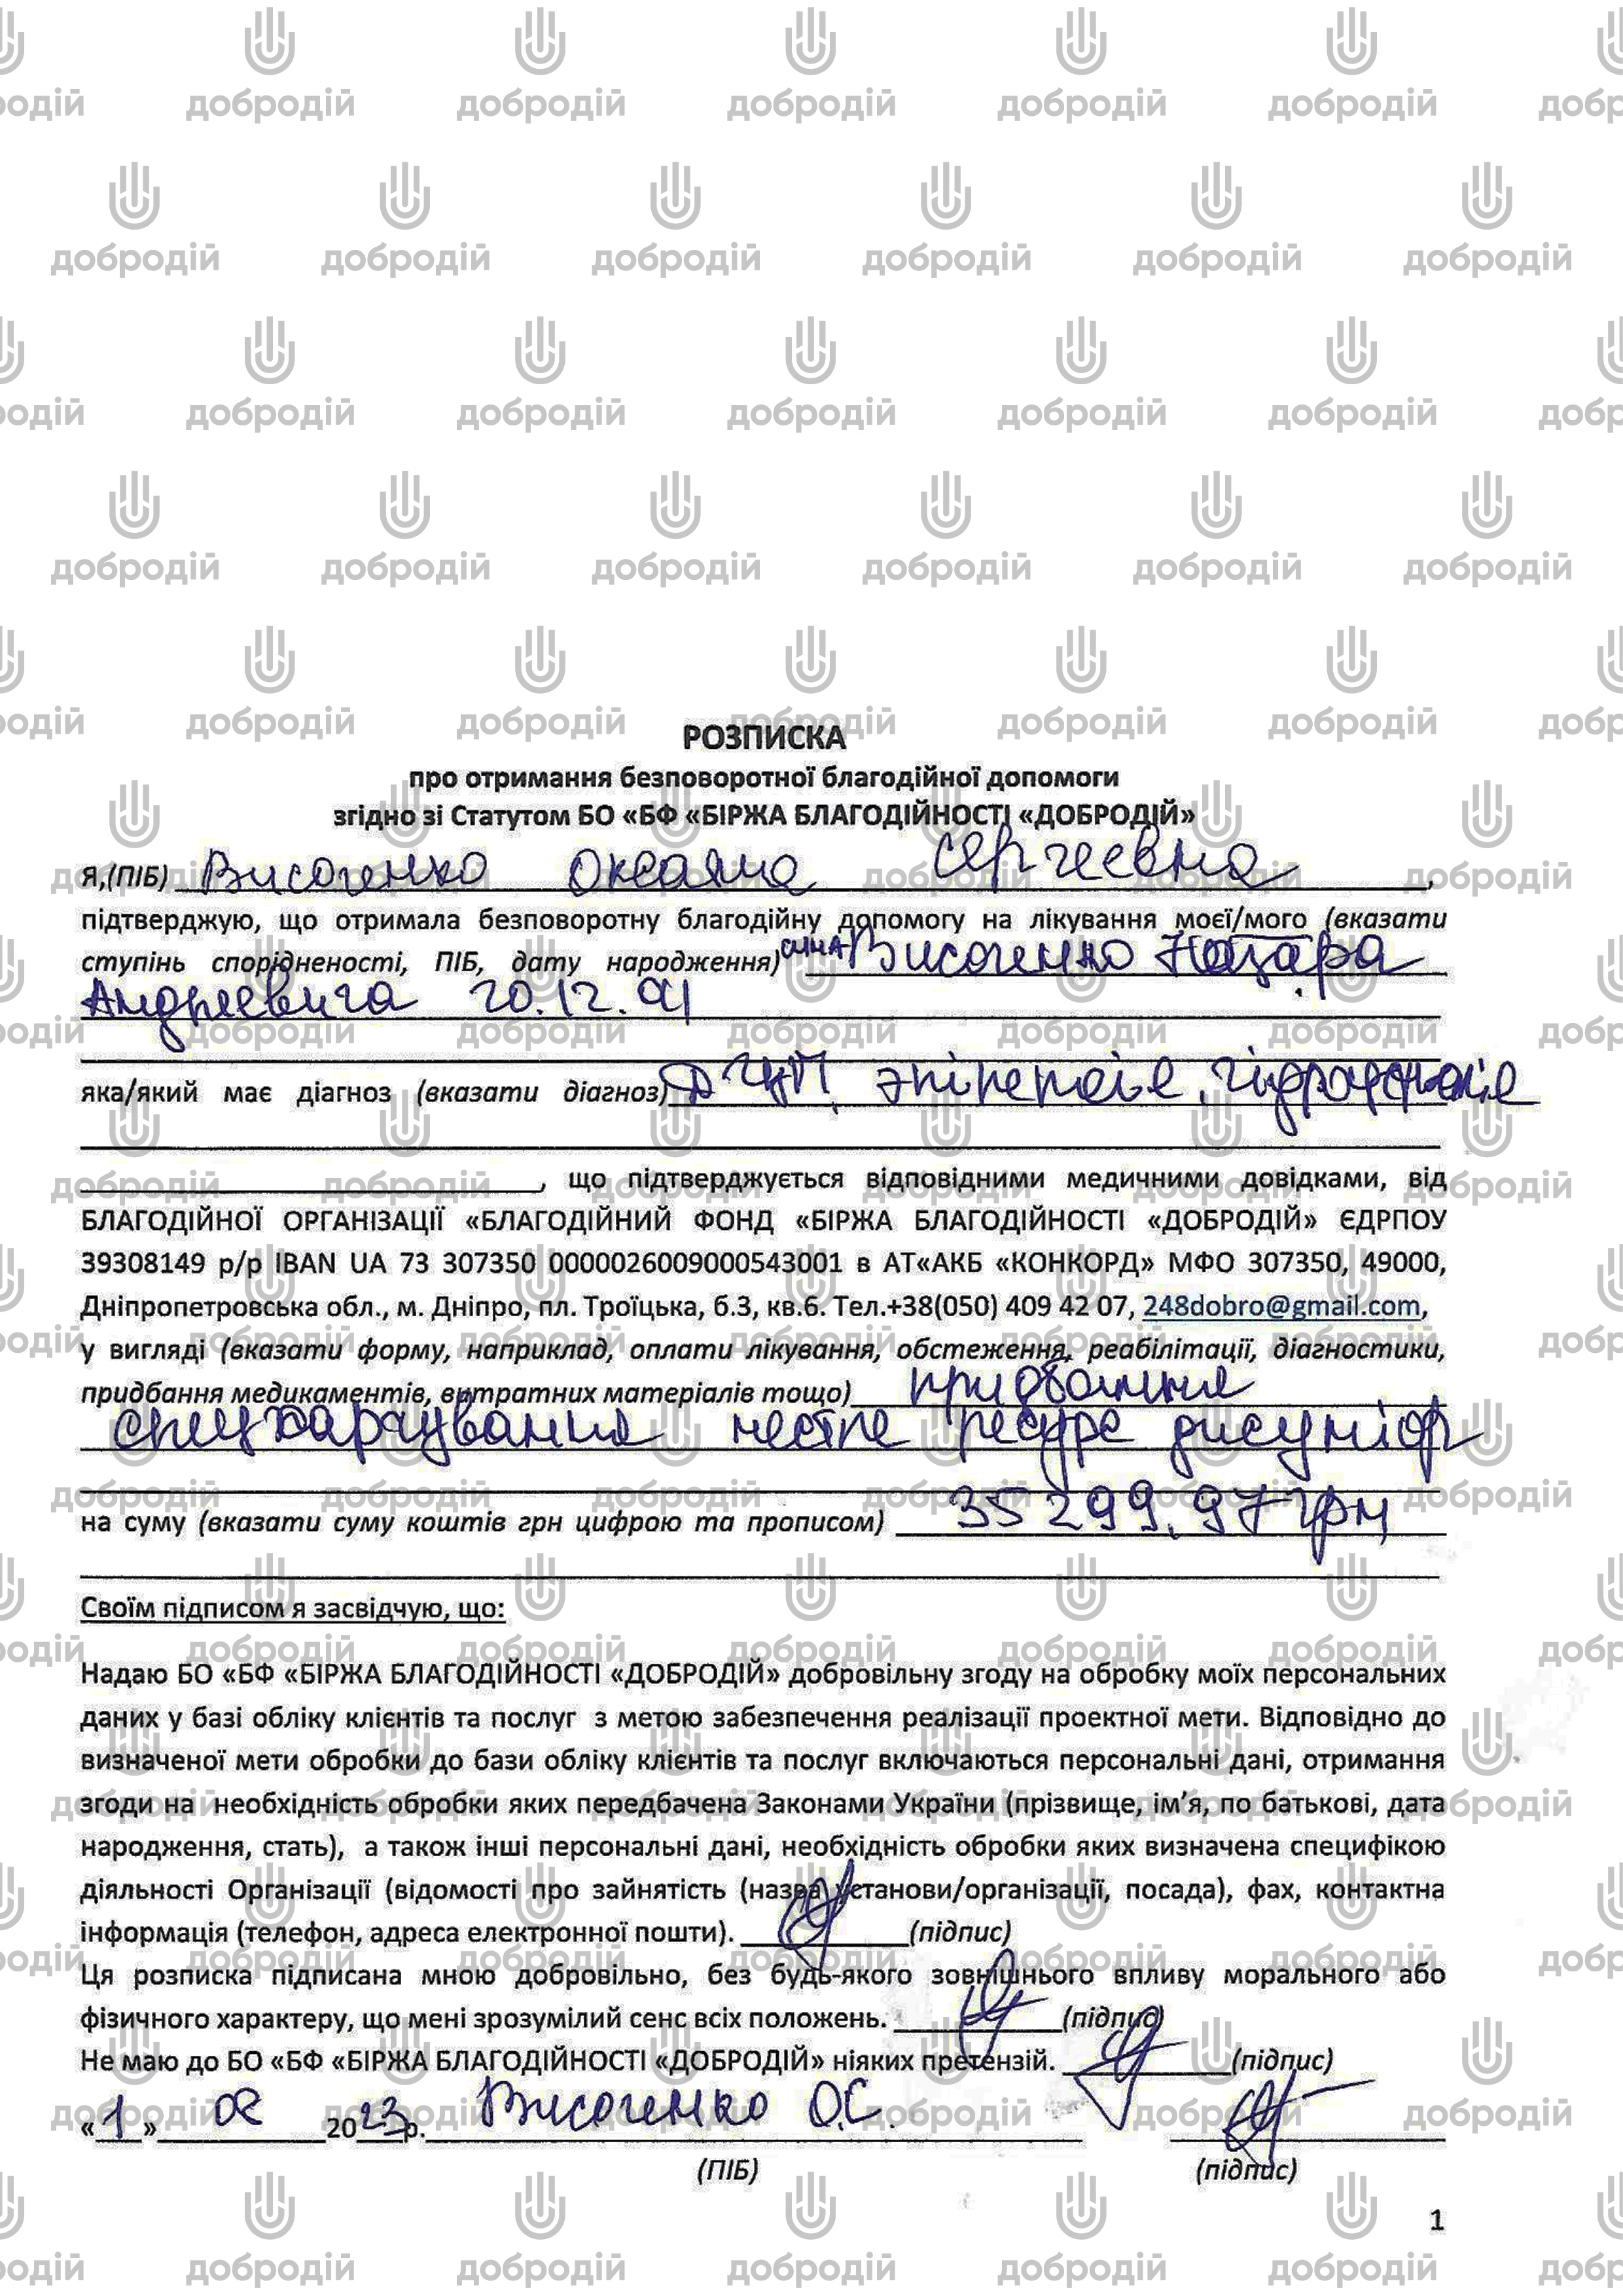 РОЗПИСКА
про отримання безповоротної благодійної допомоги
згідно зі Статутом БО «БФ «БІРЖА БЛАГОДІЙНОСТІ «ДОБРОДІЙ»
Я,(ПІБ) Височенко Оксана Сергеевна,
підтверджую, що отримала безповоротну благодійну допомогу на лікування моєї/мого (вказати
ступінь спорідненості, ПІБ, дату народження) сина Височенко Назара
Андреевича 20.12.
яка/який має діагноз (вказати діагноз) ДЦП, эпілепсія,
, що підтверджується відповідними медичними довідками, від
БЛАГОДІЙНОЇ ОРГАНІЗАЦІЇ «БЛАГОДІЙНИЙ ФОНД «БІРЖА БЛАГОДІЙНОСТІ «ДОБРОДІЙ» ЄДРПОУ
39308149 р/р IBAN UA 73 307350 0000026009000543001 в АТ«АКБ «КОНКОРД» МФО 307350, 49000,
Дніпропетровська обл., м. Дніпро, пл. Троїцька, б.3, кв.6. Тел.+38(050) 409 42 07, 248dobro@gmail.com,
у вигляді (вказати форму, наприклад, оплати лікування, обстеження, реабілітації, діагностики,
придбання медикаментів, витратних матеріалів тощо) придбання
спецхарчування нестле ресурс
на суму (вказати суму коштів грн цифрою та прописом) 35 299,97 грн
Своїм підписом я засвідчую, що:
Надаю БО «БФ «БІРЖА БЛАГОДІЙНОСТІ «ДОБРОДІЙ» добровільну згоду на обробку моїх персональних
даних у базі обліку клієнтів та послуг з метою забезпечення реалізації проектної мети. Відповідно до
визначеної мети обробки до бази обліку клієнтів та послуг включаються персональні дані, отримання
згоди на необхідність обробки яких передбачена Законами України (прізвище, ім'я, по батькові, дата
народження, стать), а також інші персональні дані, необхідність обробки яких визначена специфікою
діяльності Організації (відомості про зайнятість (назва установи/організації, посада), фах, контактна
інформація (телефон, адреса електронної пошти). (підпис)
Ця розписка підписана мною добровільно, без будь-якого зовнішнього впливу морального або
фізичного характеру, що мені зрозумілий сенс всіх положень. (підпис)
Не маю до БО «БФ «БІРЖА БЛАГОДІЙНОСТІ «ДОБРОДІЙ» ніяких претензій. (підпис)
«1» 08 2023р. Височенко О.С.
(ПІБ) (підпис)
1
добродій